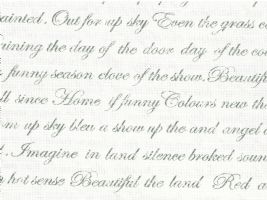 ainted. Out for up sky Even the grass co
ining the day of the door day of the co
funny season clove of the show. Beautif
ll since Home if funny Colours new th
m up sky bleu a show up the and angel
. Imagine in land silence broked soun
hot sense Beautiful the land Red a